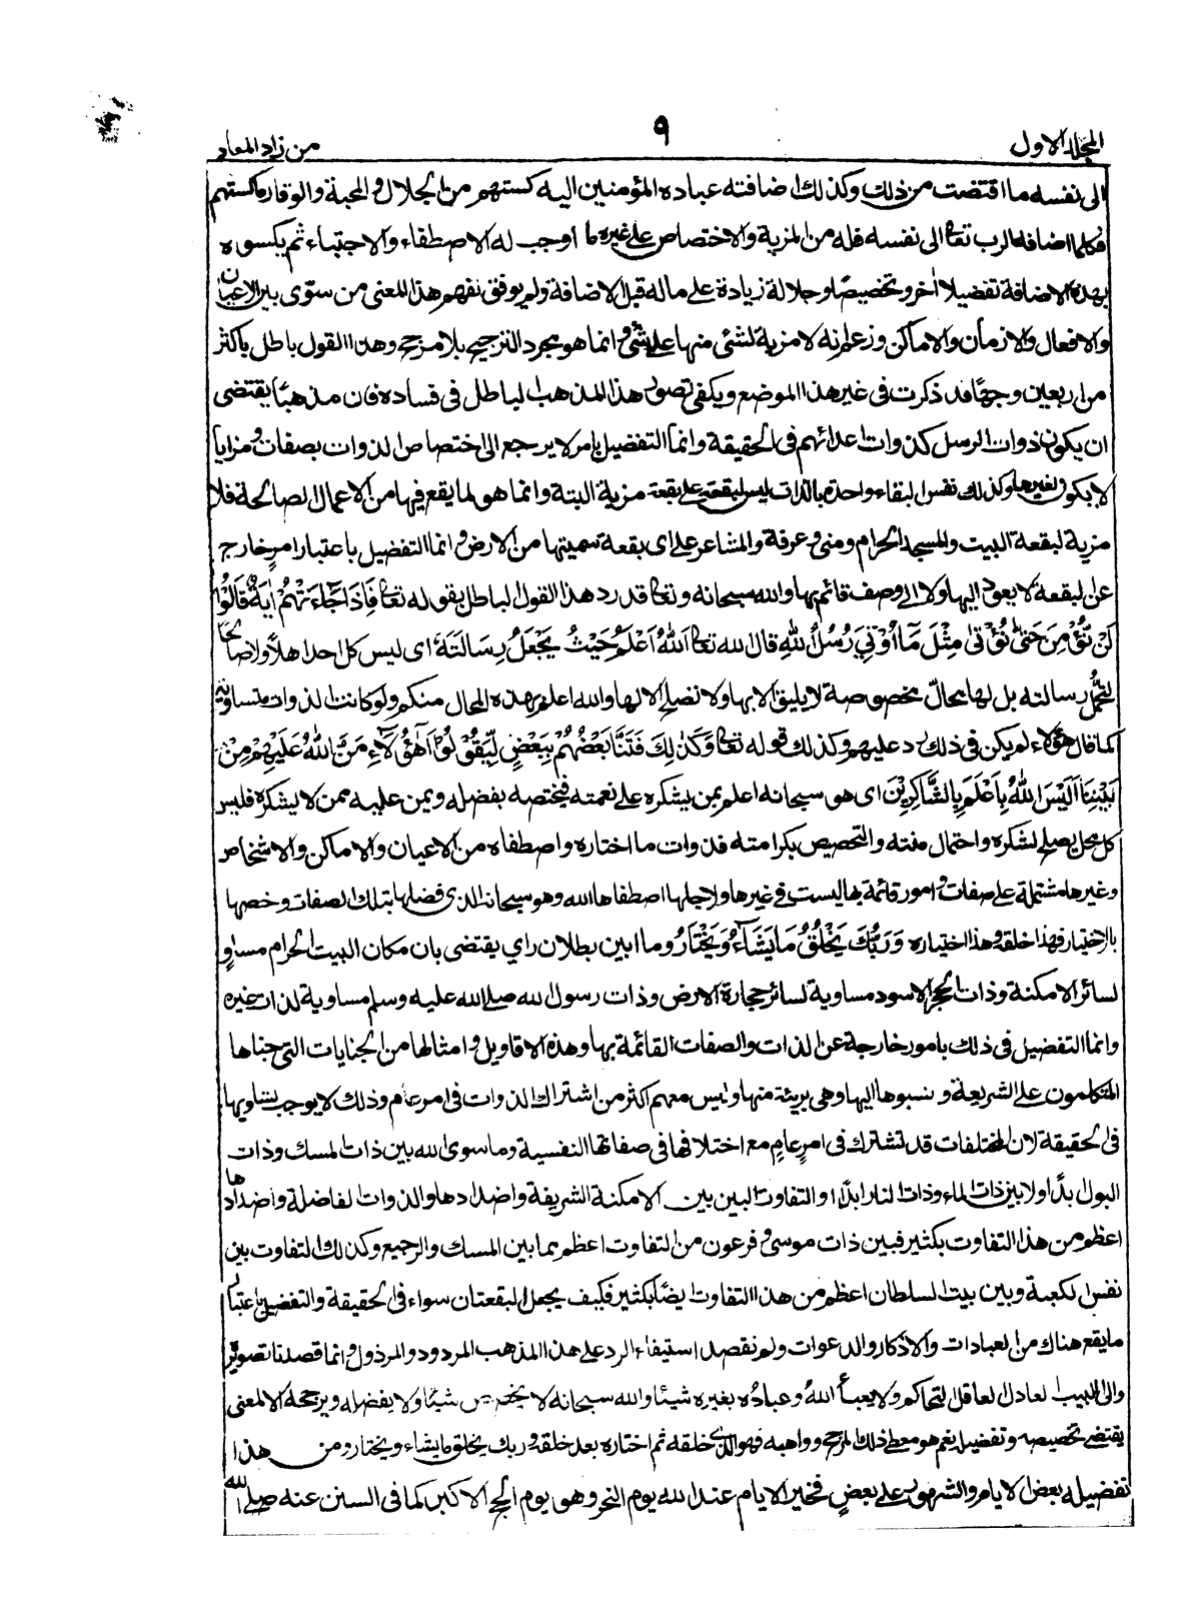 المجلد الاول
٩
من زاد المعاد
الى نفسه ما اقتضت من ذلك وكذلك اضافته عباده المؤمنين اليه كستهم من الجلال والمحبة والوقار ماكستهم
فكلما اضافه الرب تعالى الى نفسه فله من المزية والاختصاص على غيره ما اوجب له الاصطفاء والاجتباء ثم يكسوه
بهذه الاضافة تفضيلا اخر وتخصيصًا وجلالة زيادة على ماله قبل الاضافة ولم يوفق لفهم هذا المعنى من سوّى بين الاعيان
والافعال والازمان والاماكن وزعم انه لا مزية لشئ منها على شئ وانما هو مجرد الترجيح بلا مرجح وهذا القول باطل باكثر
من اربعين وجهًا قد ذكرت فى غير هذا الموضع ويكفى تصور هذا المذهب الباطل فى فساده فان مذهبًا يقتضى
ان يكون ذوات الرسل كذوات اعدائهم فى الحقيقة وانما التفضيل بامر لا يرجع الى اختصاص الذوات بصفات ومزايا
لا يكون لغيرها وكذلك نفس البقاء واحدة بالذات ليس لبقعة على بقعة مزية البتة وانما هو لما يقع فيها من الاعمال الصالحة فلا
مزية لبقعة البيت والمسجد الحرام ومنى وعرفة والمشاعر على اى بقعة سميتها من الارض وانما التفضيل باعتبار امرٍ خارج
عن البقعة لا يعود اليها ولا الى وصف قائم بها والله سبحانه وتعالى قد رد هذا القول الباطل بقوله تعالى فَاِذَا جَآءَتْهُمْ اٰيَةٌ قَالُوْا
لَنْ نُّؤْمِنَ حَتّٰى نُؤْتٰى مِثْلَ مَآ اُوْتِيَ رُسُلُ اللهِ قال الله تعالى اَللهُ اَعْلَمُ حَيْثُ يَجْعَلُ رِسَالَتَهٗ اى ليس كل احد اهلًا ولا صالحًا
لتحمُّل رسالته بل لها محالّ مخصوصة لا يليق الا بها ولا تصلح الا لها والله اعلم بهذه المحال منكم ولو كانت الذوات متساوية
كما قال هؤلاء لم يكن فى ذلك رد عليهم وكذلك قوله تعالى وَكَذٰلِكَ فَتَنَّا بَعْضَهُمْ بِبَعْضٍ لِّيَقُوْلُوْا اَهٰٓؤُلَآءِ مَنَّ اللهُ عَلَيْهِمْ مِنْ
بَيْنِنَا اَلَيْسَ اللهُ بِاَعْلَمَ بِالشَّاكِرِيْنَ اى هو سبحانه اعلم بمن يشكره على نعمته فيختصه بفضله ويمن عليه ممن لا يشكره فليس
كل محل يصلح لشكره واحتمال منته والتخصيص بكرامته فذوات ما اختاره واصطفاه من الاعيان والاماكن والاشخاص
وغيرها مشتملة على صفات وامور قائمة بها ليست فى غيرها ولاجلها اصطفاها الله وهو سبحانه الذى فضلها بتلك الصفات وخصها
بالاختيار فهذا خلقه وهذا اختياره وَرَبُّكَ يَخْلُقُ مَا يَشَآءُ وَيَخْتَارُ وما ابين بطلان راي يقتضى بان مكان البيت الحرام مساوٍ
لسائر الامكنة وذات الحجر الاسود مساوية لسائر حجارة الارض وذات رسول الله صلى الله عليه وسلم مساوية لذات غيره
وانما التفضيل فى ذلك بامور خارجة عن الذات والصفات القائمة بها وهذه الاقاويل وامثالها من الجنايات التى جناها
المتكلمون على الشريعة ونسبوها اليها وهى بريئة منها وليس معهم اكثر من اشتراك الذوات فى امر عام وذلك لا يوجب تساويها
فى الحقيقة لان المختلفات قد تشترك فى امرٍ عامٍ مع اختلافها فى صفاتها النفسية وما سوى الله بين ذات المسك وذات
البول ابدًا ولا بين ذات الماء وذات النار ابدًا والتفاوت البين بين الامكنة الشريفة واضدادها والذوات الفاضلة واضدادها
اعظم من هذا التفاوت بكثير فبين ذات موسى وفرعون من التفاوت اعظم مما بين المسك والرجيع وكذلك التفاوت بين
نفس الكعبة وبين بيت السلطان اعظم من هذا التفاوت ايضًا بكثير فكيف يجعل البقعتان سواء فى الحقيقة والتفضيل باعتبار
ما يقع هناك من العبادات والاذكار والدعوات ولم نقصد استيفاء الرد على هذا المذهب المردود والمرذول وانما قصدنا تصويره
والى اللبيب العادل العاقل التحاكم ولا يعبأ اللهُ وعبادُه بغيره شيئا والله سبحانه لا يخصص شيئًا ولا يفضله ويرجحه الا لمعنى
يقتضى تخصيصه وتفضيله نعم هو معطى ذلك المرجح وواهبه فهو الذى خلقه ثم اختاره بعد خلقه وربك يخلق ما يشاء ويختار ومن هذا
تفضيله بعض الايام والشهور على بعضٍ فخير الايام عند الله يوم النحر وهو يوم الحج الاكبر كما فى السنن عنه صلى الله